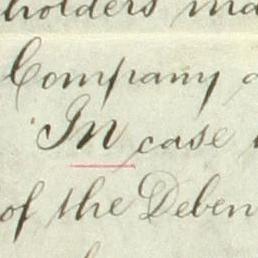 holders ma
Company
In case
of the Deben